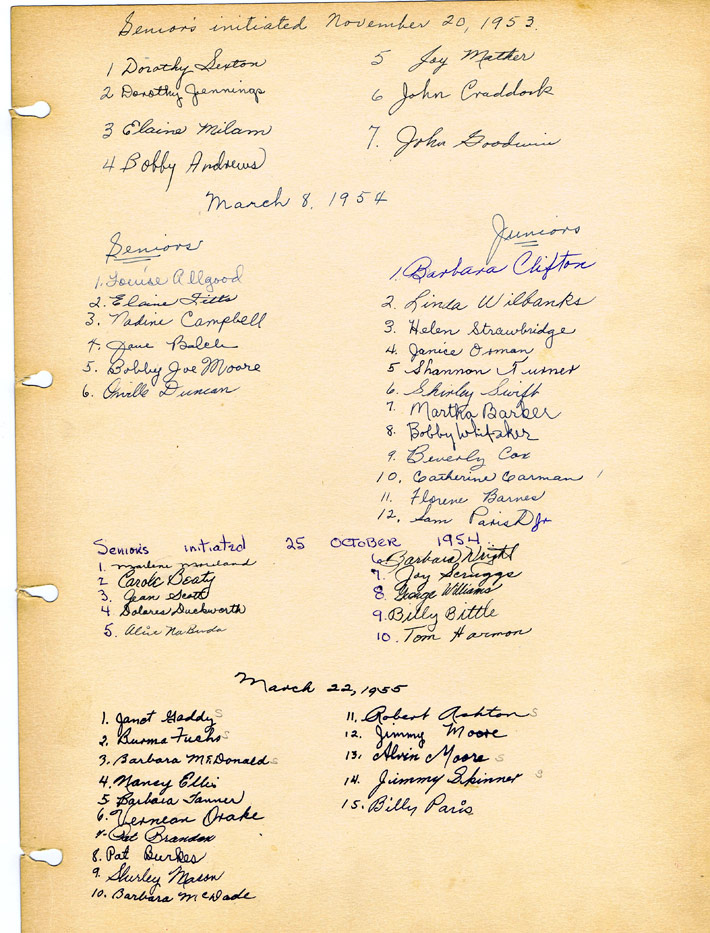 Seniors initiated November 20, 1953.
1 Dorothy Sexton
2 Dorothy Jennings
3 Elaine Milam
4 Bobby Andrews
5 Joy Mather
6 John Craddock
7. John Goodwin
March 8, 1954
Seniors
1. Louise Allgood
2. Elaine Fitts
3. Nadine Campbell
4. Jane Balch
5. Bobby Joe Moore
6. Orville Duncan
Juniors
1. Barbara Clifton
2. Linda Wilbanks
3. Helen Strawbridge
4. Janice Orman
5 Shannon Turner
6. Shirley Swift
7. Martha Barber
8. Bobby Whitaker
9. Beverly Cox
10. Catherine Carman
11. Florene Barnes
12. Sam Parish Jr
Seniors initiated 25 OCTOBER 1954
1. Marlene Moreland
2 Carole Beaty
3. Jean Scott
4 Dolores Duckworth
5. Alice
6. Barbara Wright
7. Joy Scruggs
8. George Williams
9. Billy Bittle
10. Tom Harmon
March 22, 1955
1. Janet Gaddy S
2. Burma Fuchs S
3. Barbara McDonald S
4. Nancy Ellis
5 Barbara Tanner
6. Vernean Drake
7. Pat Brandon
8. Pat Burkes
9. Shirley Mason
10. Barbara McDade
11. Robert Ashton S
12. Jimmy Moore
13. Alvin Moore S
14. Jimmy Skinner S
15. Billy Paris